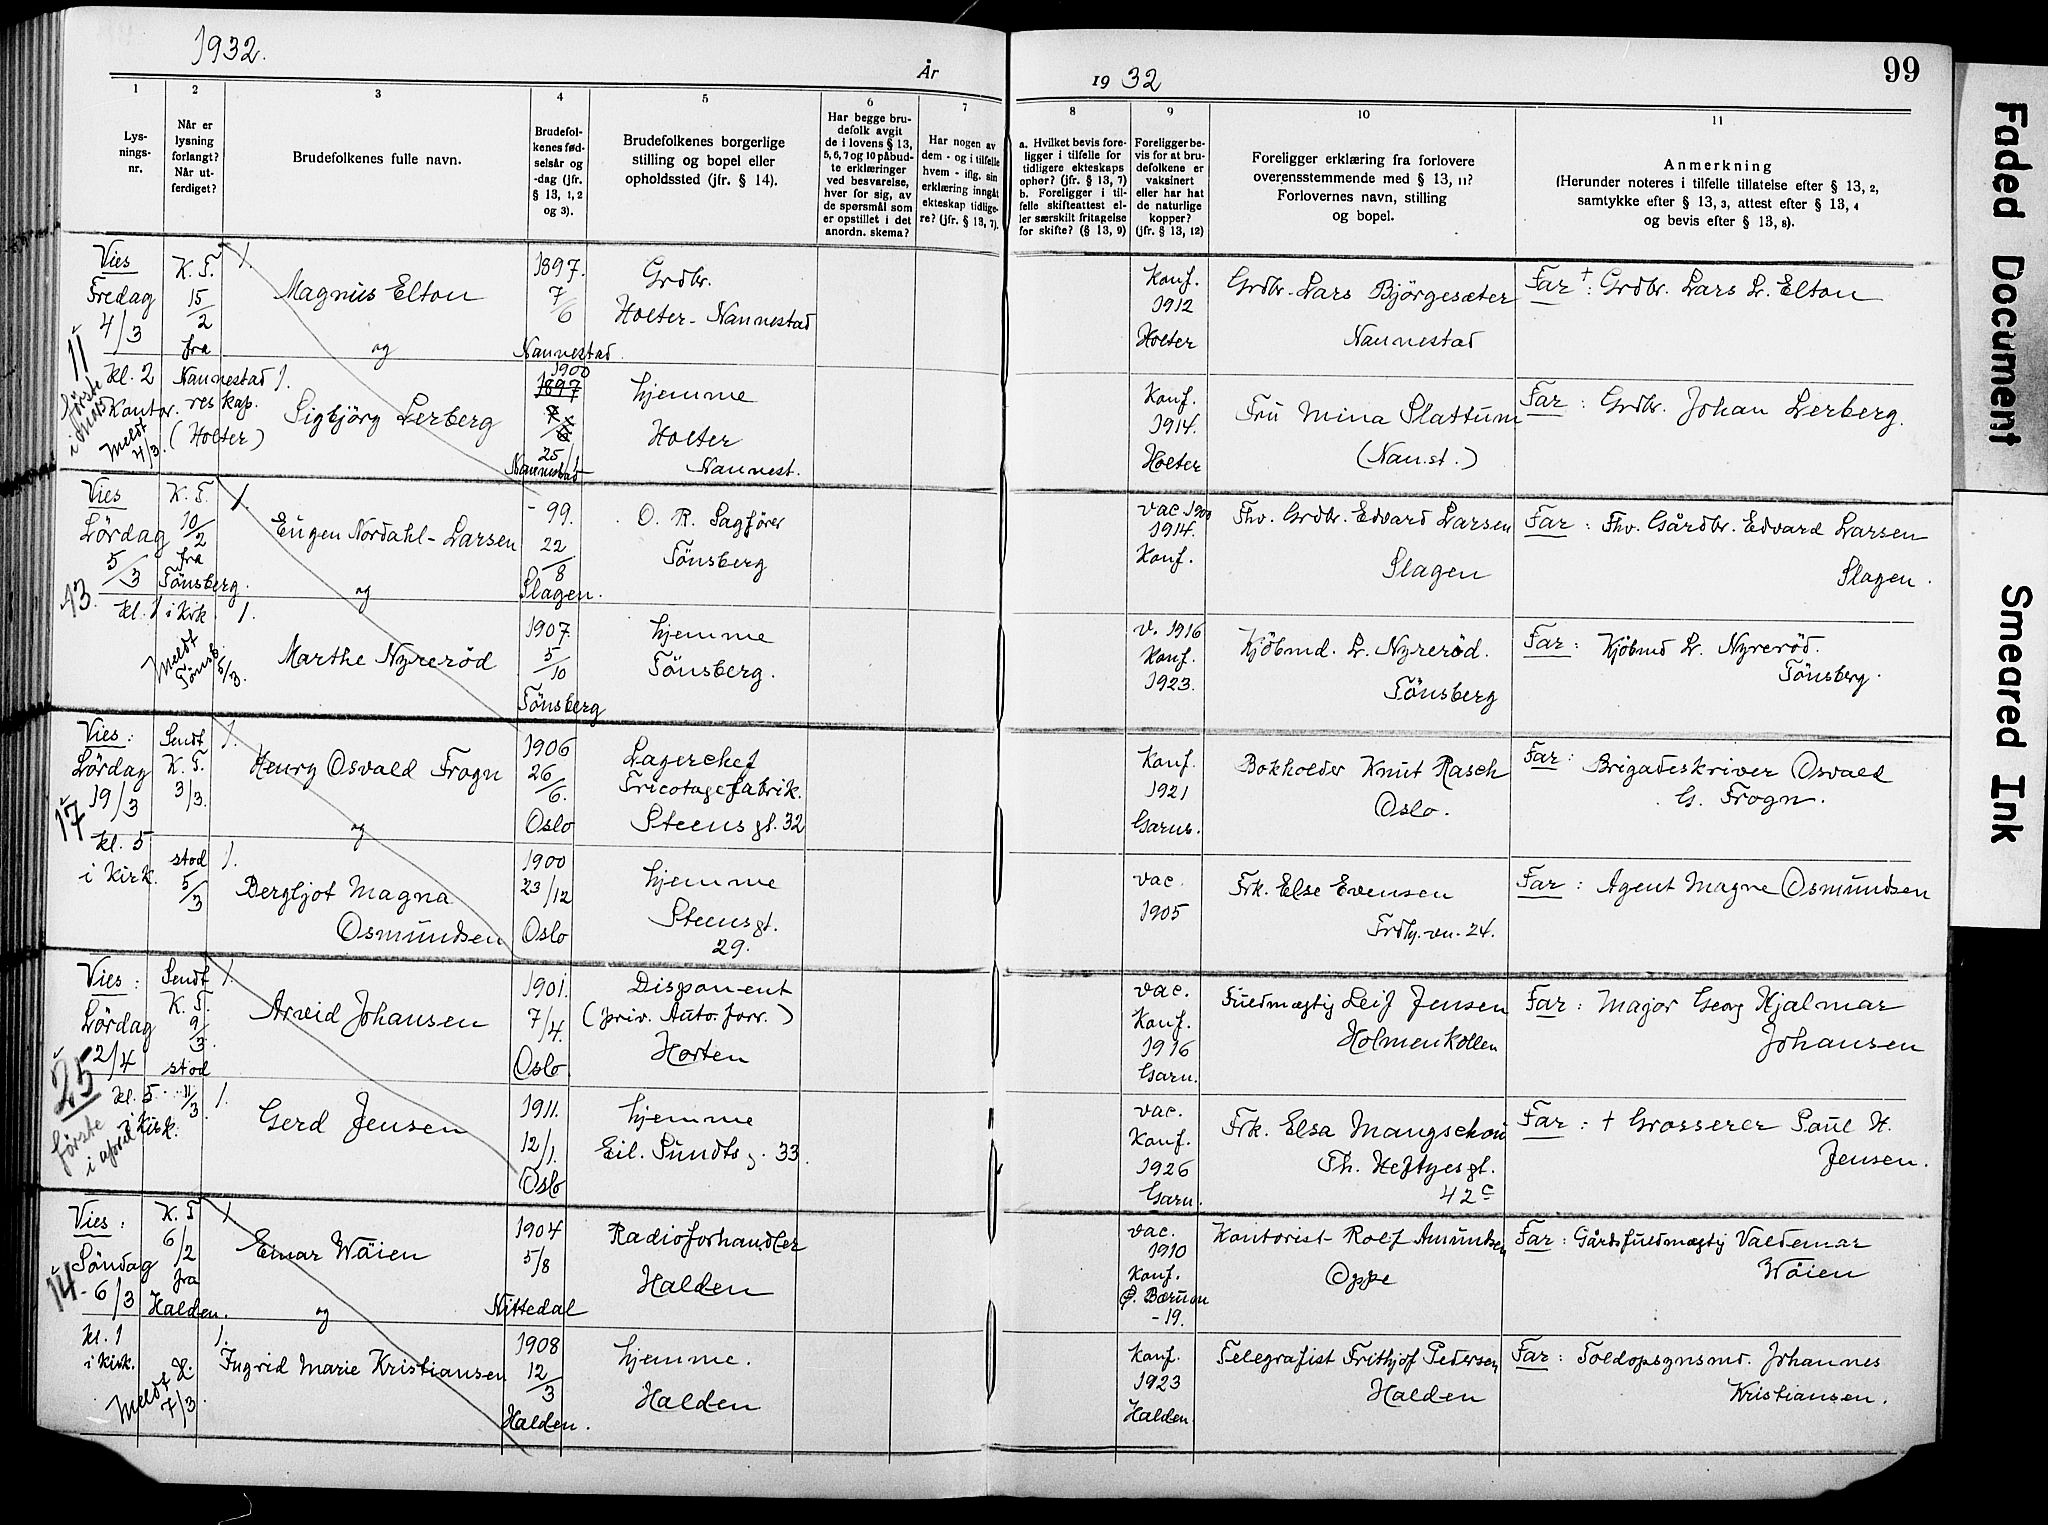 1932.
År
19 32
99
1
2
3
4
5
6
7
8
9
10
11
Lys-
nings-
nr.
Når er
lysning
forlangt?
Når ut-
ferdiget?
Brudefolkenes fulle navn.
Brudefol-
kenes fød-
selsår og
-dag (jfr.
§ 13, 1, 2
og 3).
Brudefolkenes borgerlige
stilling og bopel eller
opholdssted (jfr. § 14).
Har begge bru-
defolk avgit
de i lovens § 13,
5, 6, 7 og 10 påbud-
te erklæringer
ved besvarelse,
hver for sig, av
de spørsmål som
er opstillet i det
anordn. skema?
Har nogen av
dem - og i tilfelle
hvem - iflg. sin
erklæring inngått
ekteskap tidlige-
re? (jfr. § 13, 7).
a. Hvilket bevis fore-
ligger i tilfelle for
tidligere ekteskaps
ophør? (jfr. § 13, 7)
b. Foreligger i til-
felle skifteattest el-
ler særskilt fritagelse
for skifte? (§ 13, 9)
Foreligger be-
vis for at bru-
defolkene er
vaksinert
eller har hat
de naturlige
kopper?
(jfr. § 13, 12)
Foreligger erklæring fra forlovere
overensstemmende med § 13, 11?
Forlovernes navn, stilling
og bopel.
Anmerkning
(Herunder noteres i tilfelle tillatelse efter § 13, 2,
samtykke efter § 13, 3, attest efter § 13, 4
og bevis efter § 13, 8).
Vies
Fredag
4/3
11
kl. 2
Kontor.
første
i mars
Meldt
4/3.
K. T.
15
/2
fra
Nannestad
res kap.
(Holter)
1.
Magnus Elton
og
1897.
7
/6
Nannestad.
Grdbr.
Holter - Nannestad
Konf.
1912
Holter
Grdbr. Lars Bjørgesæter
Nannestad
Far †: Grdbr. Lars L. Elton
1.
Sigbjörg Lerberg
1900
1897
25
Nannestad
hjemme
Holter
Nannest.
Konf.
1914.
Holter
Fru Mina Slattum
(Nanst.)
Far : Grdbr. Johan Lerberg.
Vies
Lördag
5
/3
13.
kl. 1 i Kirk.
Meldt
Tönsb.
5/3.
K. T.
10
/2
fra
Tönsberg.
1.
Eugen Nordahl-Larsen
og
- 99.
22
/8
Slagen.
O. R. Sagfører
Tönsberg
vac 1900
1914.
Konf.
Fhv. Grdbr. Edvard Larsen
Slagen
Far : Fhv. Gårdbr. Edvard Larsen
Slagen.
1.
Marthe Nyrerød
1907.
5
/10
Tönsberg
hjemme
Tönsberg.
v. 1916
Konf.
1923.
Kjöbmd. L. Nyrerød.
Tönsberg
Far : Kjöbmd L. Nyrerød.
Tönsberg.
Vies :
Lördag
19/3
17
kl. 5
i Kirk.
Sendt
K. T.
3/3.
stod
5
/3
1.
Henry Osvald Frogn
og
1906
26
/6.
Oslo
Lagerchef
Tricotagefabrik.
Steens gt. 32
Konf.
1921
Garns.
Bokholder Knut Rasch
Oslo.
Far : Brigadeskriver Osvald
G. Frogn.
1.
Bergljot Magna
Osmundsen
1900
23/12
Oslo
hjemme
Steensgt.
29.
vac.
1905
Frk. Else Evensen
Frdly.vn. 24.
Far : Agent Magne Osmundsen
Vies :
Lördag
2/4
25
kl. 5
i Kirk.
første
i april
Sendt
K. T.
9
/3.
stod
11
/3
1.
Arvid Johansen
1901.
7/4.
Oslo.
Disponent
(priv. Auto. forr.)
Horten
vac.
Konf.
1916
Garn.
Fuldmægtig Leif Jensen
Holmenkollen
Far : Major Georg Hjalmar
Johansen
1.
Gerd Jensen
1911.
12/1.
Oslo
hjemme
Eil. Sundts g. 33.
vac.
Konf.
1926
Garn.
Frk. Elsa Mangschou
Th. Heftyesgt.
42 c
Far : † Grosserer Paul H.
Jensen.
Vies :
Söndag
- 6/3
14
kl. 1
i Kirk.
Meldt H.
7/3.
K. T
6
/2
fra
Halden.
1
Einar Wøien
og
1904
5/8
Nittedal
Radioforhandler
Halden
vac.
1910
Konf.
Ø. Bærum
- 19.
Kontorist Rolf Amundsen
Oppe
Far : Gårdsfuldmægtig Valdemar
Wøien
1.
Ingrid Marie Kristiansen
1908
12
/3
Halden.
hjemme.
Halden
Konf.
1923
Halden.
Telegrafist Frithjof Pedersen
Halden
Far : Toldopsynsmd. Johannes
Kristiansen.
Faded Document
Smeared Ink